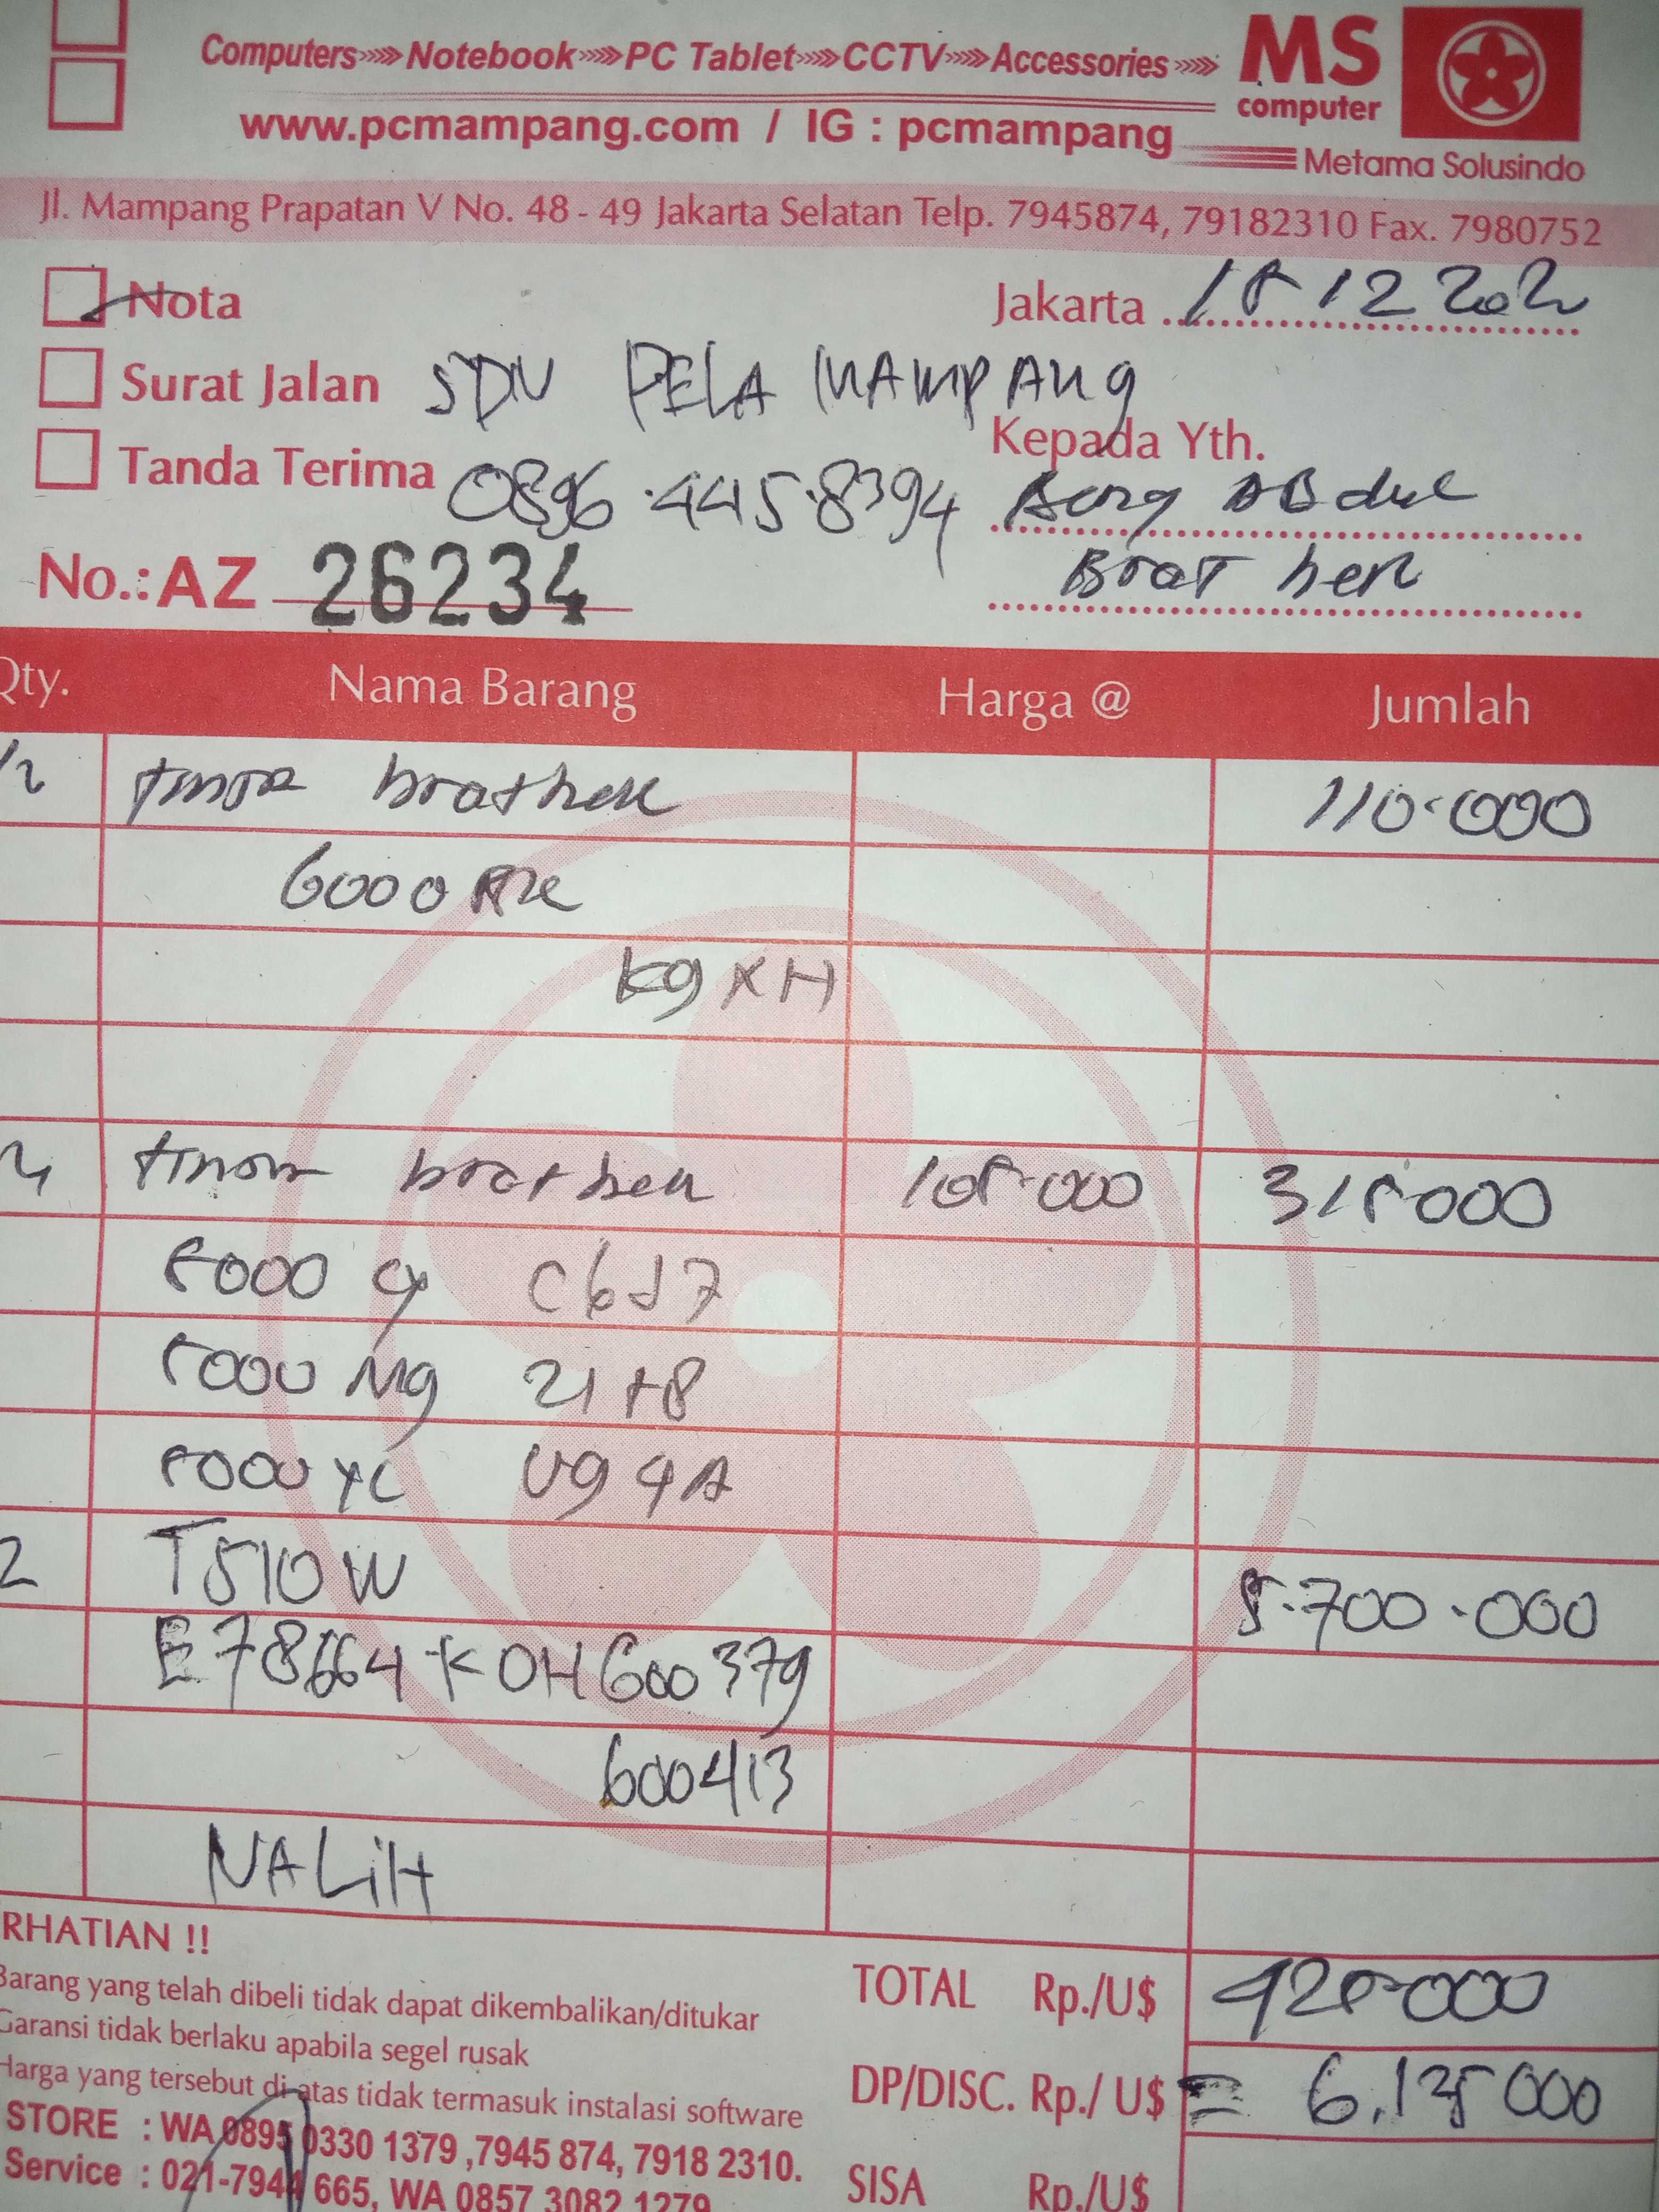 Computers Notebook PC Tablet CCTV Accessories
MS
computer
www.pcmampang.com / IG : pcmampang
Metama Solusindo
Jl. Mampang Prapatan V No. 48 - 49 Jakarta Selatan Telp. 7945874, 79182310 Fax. 7980752
Nota
Jakarta 15 12 202
Surat Jalan
SDN PELA MAMPANg
Kepada Yth.
Tanda Terima
0896.445.8394
Bang Abdul
No.:AZ 26234
Brother
Qty. Nama Barang Harga @ Jumlah
brother 110.000
6000
kg X H
brother 105.000 315000
5000 C6J7
5000 Mg 21+8
5000 U94A
2 T510W 5.700.000
E78664 K0H600379
600413
NALiH
RHATIAN !!
Barang yang telah dibeli tidak dapat dikembalikan/ditukar
Garansi tidak berlaku apabila segel rusak
Harga yang tersebut di atas tidak termasuk instalasi software
STORE : WA 0895 0330 1379 ,7945 874, 7918 2310.
Service : 021-7944 665, WA 0857 3082 1279
TOTAL Rp./U$ 425.000
DP/DISC. Rp./ U$ = 6.125 000
SISA Rp./U$